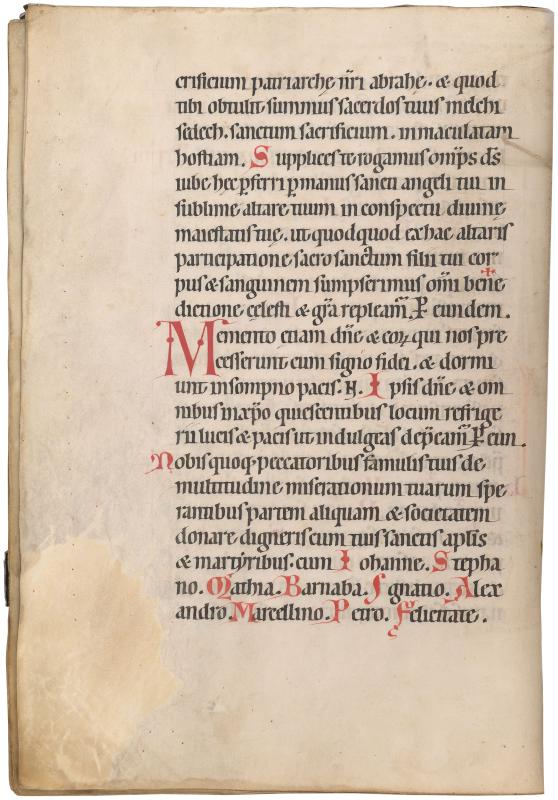 crificium patriarche nr̄i abrahe. & quod
tibi obtulit summus sacerdos tuus melchi
sedech. sanctum sacrificium. inmaculatam
hostiam. Supplices te rogamus omp̄s d̄s
iube hec ꝑferri ꝑ manus sancti angeli tui in
sublime altare tuum in conspectu diuine
maiestatis tuę. ut quodquod ex hac altaris
participatione sacrosanctum filii tui cor
pus & sanguinem sumpserimus om̄i bene✝
dictione cęlesti & gr̄a repleam̄. P̄ eundem.
Memento etiam dn̄e & eoꝝ qui nos pre
cesserunt cum signo fidei. & dormi
unt in sompno pacis. N. Ipsis dn̄e & om
nibus in xp̄o quiescentibus locum refrige
rii lucis & pacis ut indulgeas dep̄cam̄ P̄ eun.
Nobis quoq; peccatoribus famulis tuis de
multitudine miserationum tuarum spe
rantibus partem aliquam & societatem
donare digneris cum tuis sanctis ap̄lis
& martyribus. cum Iohanne. Stepha
no. Mathia. Barnaba. Ignatio. Alex
andro. Marcellino. Petro. Felicitate.